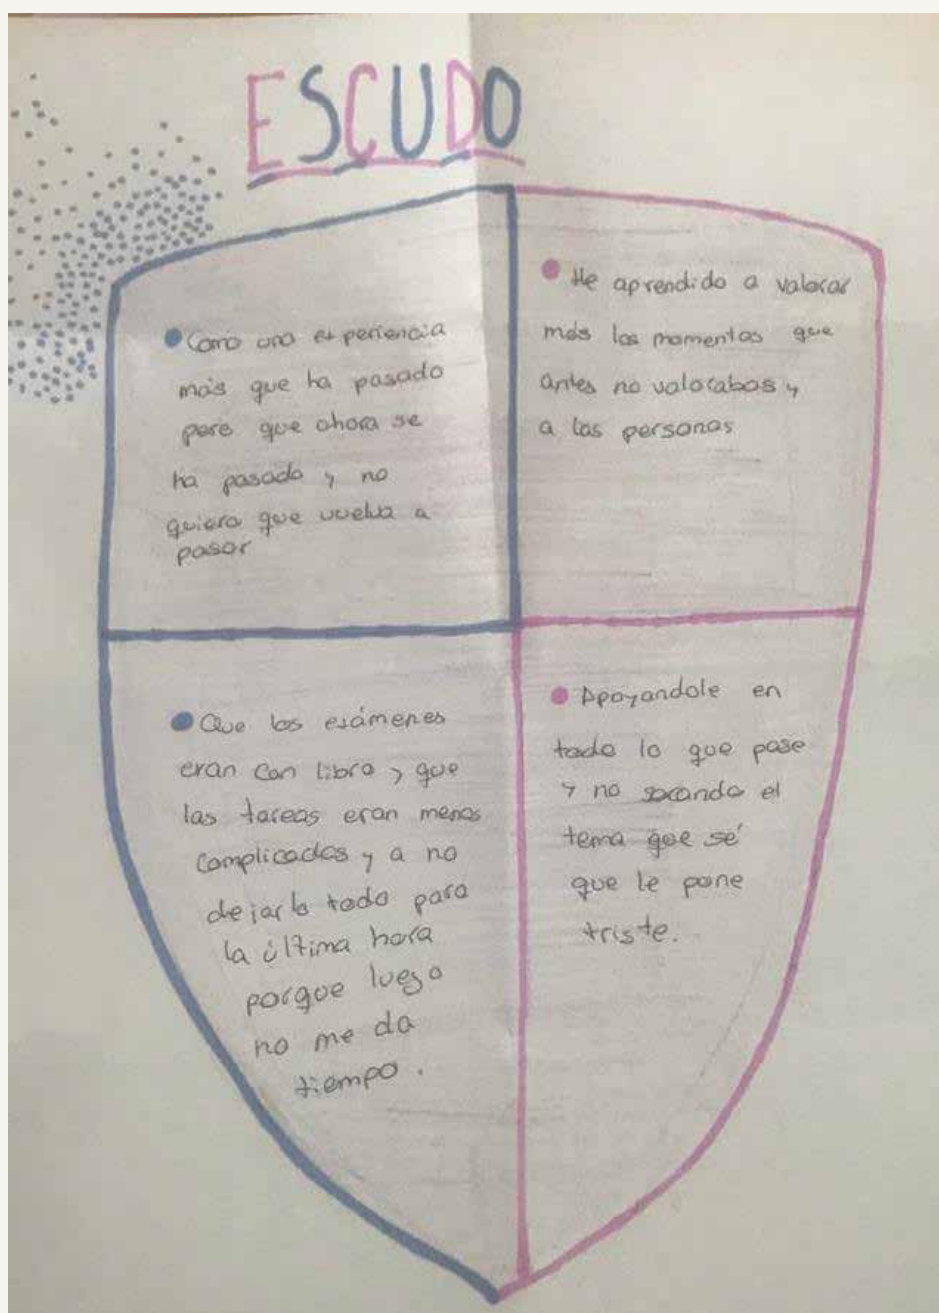 ESCUDO
Como una experiencia
más que ha pasado
pero que ahora se
ha pasado y no
quiero que vuelva a
pasar
He aprendido a valorar
más los momentos que
antes no valorabas y
a las personas
Que los exámenes
eran con libro y que
las tareas eran menos
complicadas y a no
dejarlo todo para
la última hora
porque luego
no me da
tiempo.
Apoyandole en
todo lo que pase
y no sacando el
tema que sé
que le pone
triste.